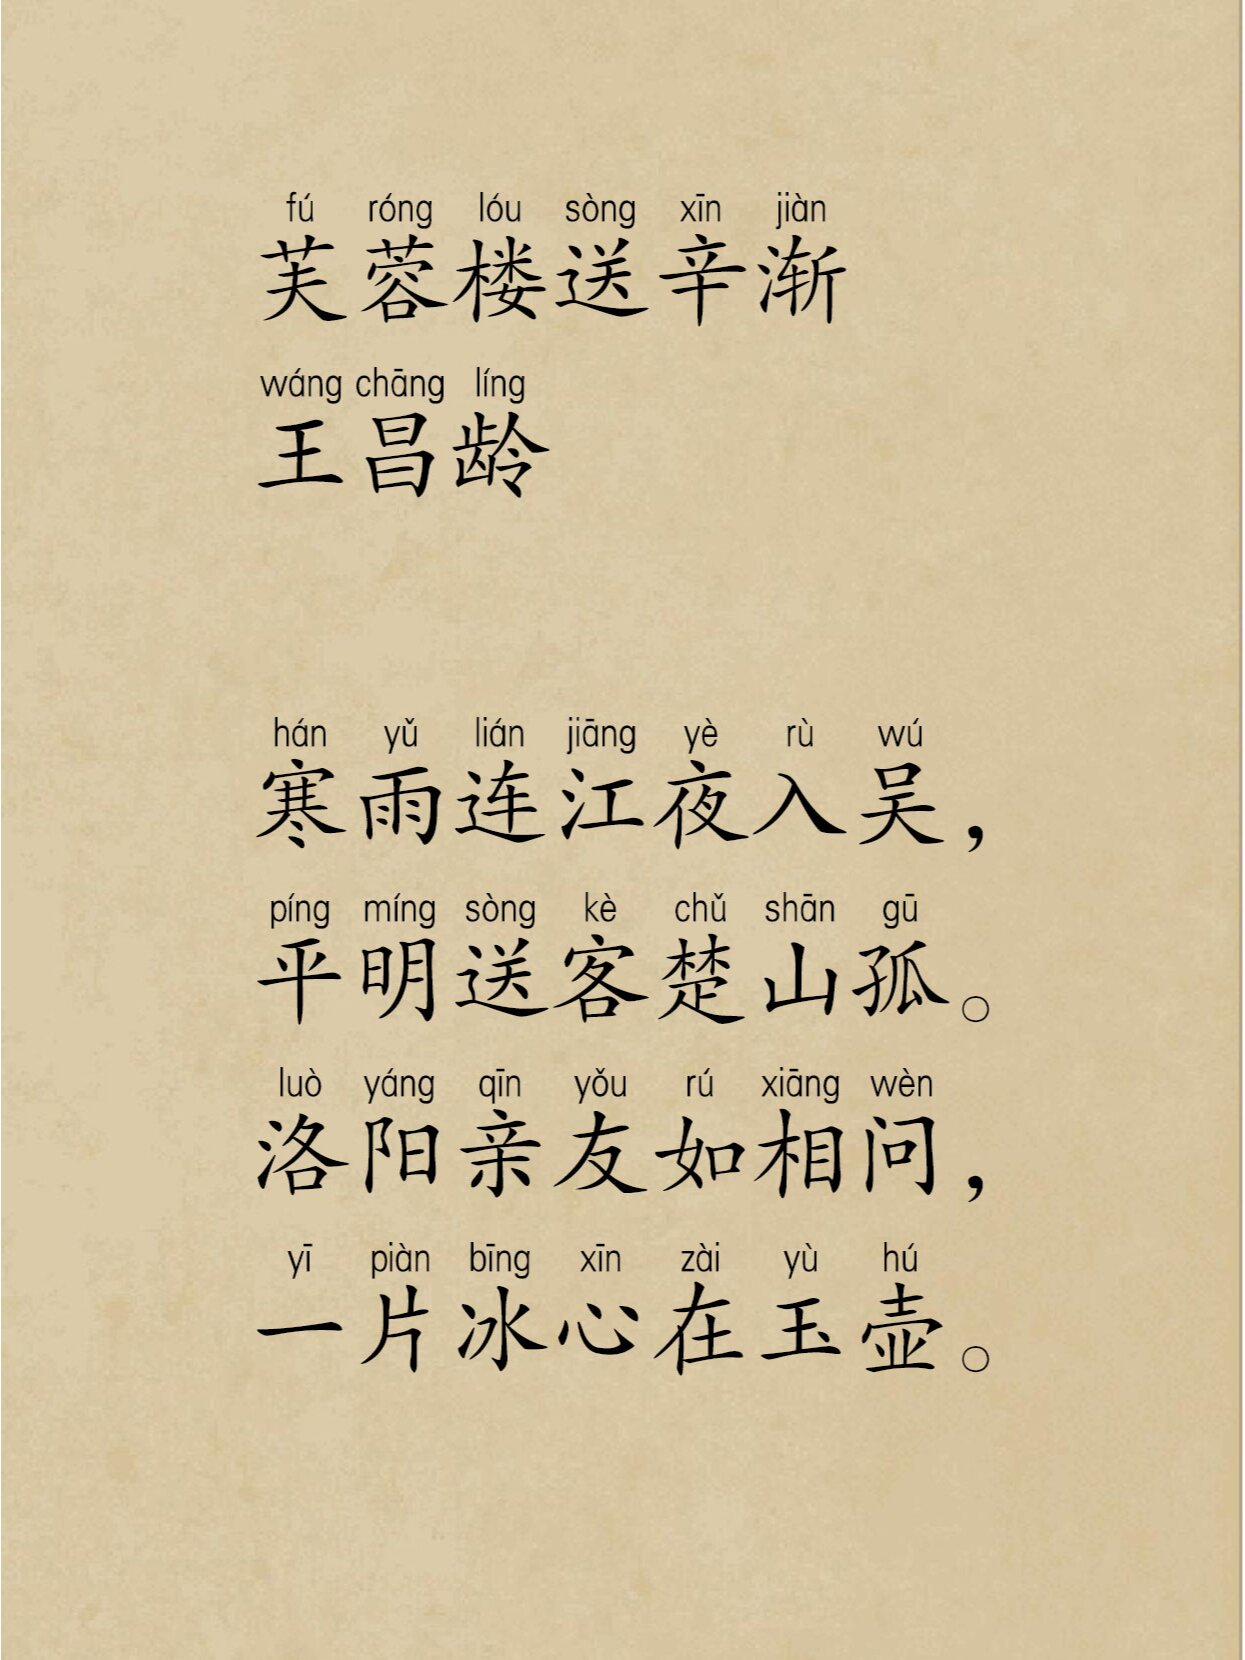 fú róng lóu sòng xīn jiàn
芙蓉楼送辛渐
wáng chāng líng
王昌龄
hán yǔ lián jiāng yè rù wú
寒雨连江夜入吴，
píng míng sòng kè chǔ shān gū
平明送客楚山孤。
luò yáng qīn yǒu rú xiāng wèn
洛阳亲友如相问，
yī piàn bīng xīn zài yù hú
一片冰心在玉壶。